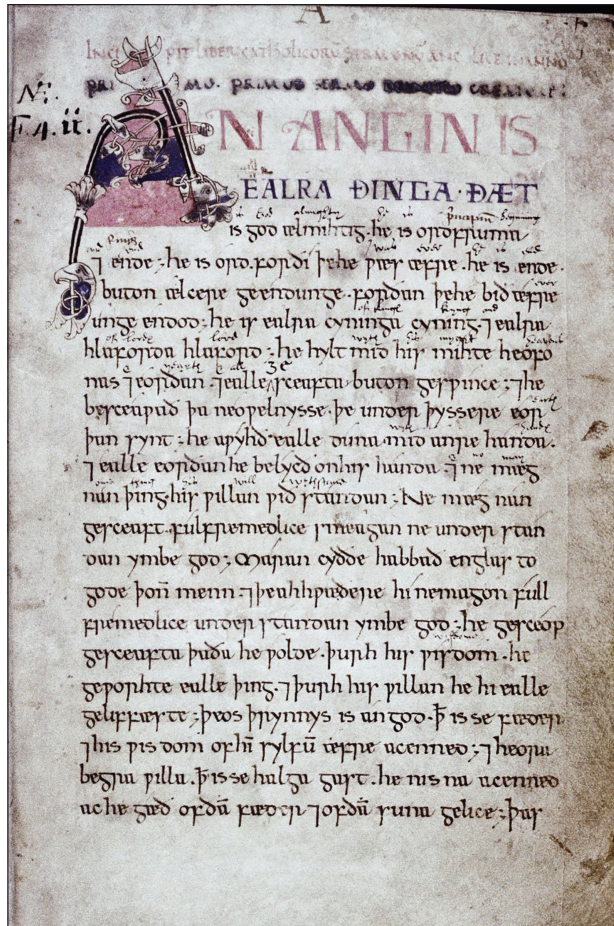 A
INCIPIT LIBER CATHOLICORŪ SERMONŪ ANGLICE IN ANNO
PRIMO. PRIMUS SERMO
N:
F.4.ii.
AN ANGIN IS
EALRA ÐINGA · ÐÆT
is God almighty he is principiū beginning
is god ælmihtig. he is ordfruma
⁊ ende; he is ord. forði þe he ƿæs æfre. he is ende.
buton ælcere geendunge. forðan þe he bið æfre
unge endod; he is ealra cyninga cyning. ⁊ ealra
of lords lord with his myght
hlaforda hlaford; he hylt mid his mihte heofo
nas ⁊ eorðan. ⁊ ealle ge sceafta buton gesƿince; ⁊ he
besceaƿað þa neoƿelnysse. þe under þyssere eor
þan synt; he aƿyhð ealle duna. mid anre handa.
⁊ ealle eorðan he belycð on his handa. ⁊ ne mæg
will wythstand
nan þing his ƿillan ƿið standan; Ne mæg nan
gesceaft. fulfremedlice smeagan ne under stan
dan ymbe god; Maran cyððe habbað englas to
gode þoñ menn. ⁊ þeahhƿæðere hi ne magon full
fremedlice under standan ymbe god; he gesceop
wysdome
gesceafta þaða he ƿolde. þurh his ƿisdom. he
geƿorhte ealle þing. ⁊ þurh his ƿillan he hi ealle
geliffæste; þeos þrynnys is an god. ꝥ is se fæder
⁊ his ƿisdom of hī sylfū æfre acenned; ⁊ heora
begra ƿilla. ꝥ is se halga gast. he nis na acenned
ac he gæð of ðā fæder ⁊ of ðā suna gelice; þas